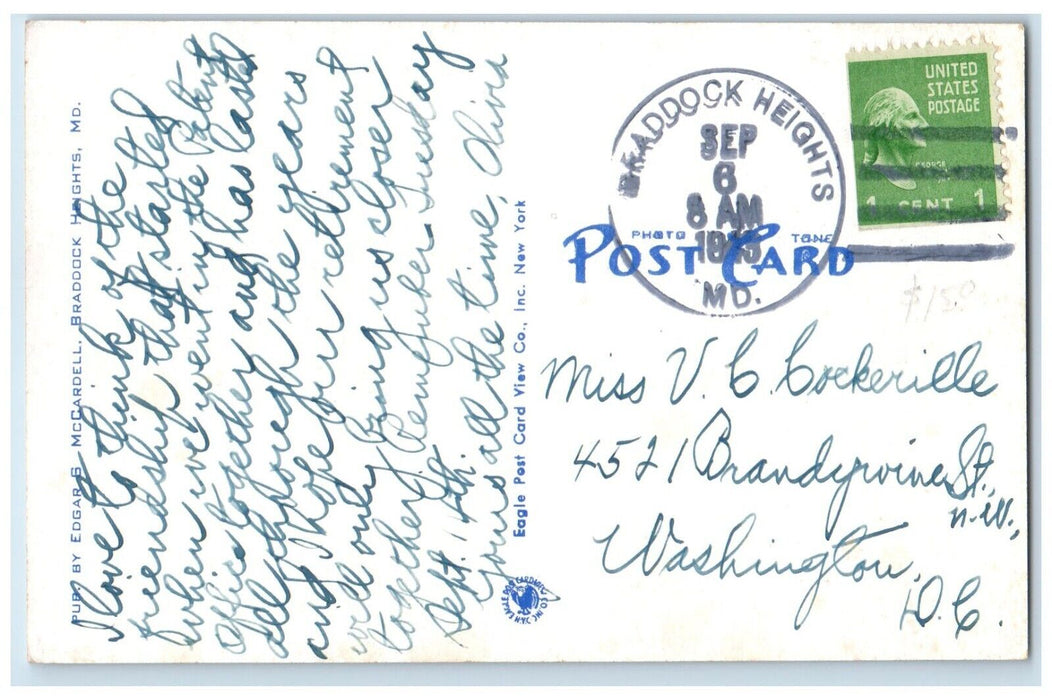 PUB. BY EDGAR S. MCCARDELL, BRADDOCK HEIGHTS, MD.
I love to think of the
friendship that started
when we went in the Patent
Office together and has lasted
all through the years
and I hope our retirement
will only bring us closer
together. Remember Tuesday
Sept. 14th.
Yours all the time, Olivia
Eagle Post Card View Co., Inc. New York
BRADDOCK HEIGHTS
SEP
6
8 AM
MD.
UNITED
STATES
POSTAGE
GEORGE
1 CENT 1
PHOTO TONE
POST CARD
$1.50
Miss V. C. Cockerille
4521 Brandywine St.,
N.W.,
Washington,
D.C.